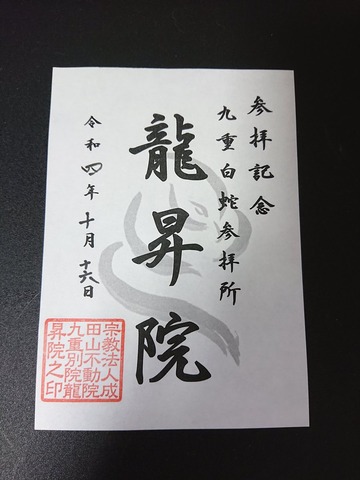 参拝記念
九重白蛇参拝所
龍昇院
令和四年十月十六日
宗教法人成
田山不動院
九重別院龍
昇院之印